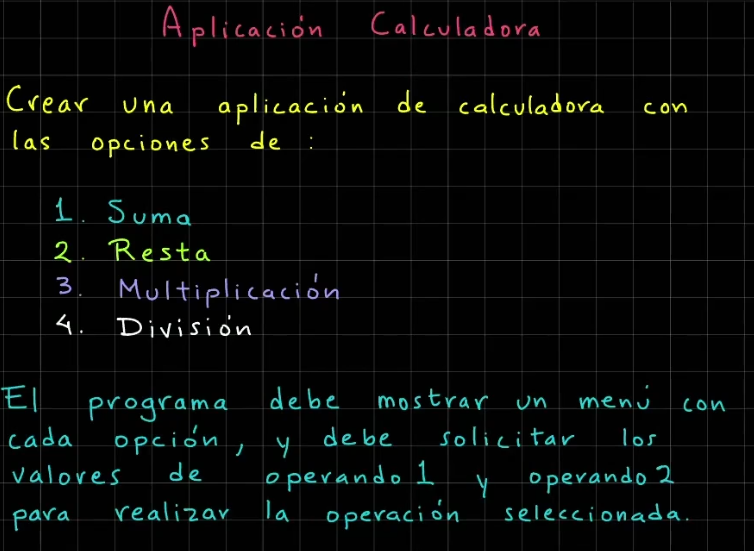 Aplicación Calculadora
Crear una aplicación de calculadora con
las opciones de :
1. Suma
2. Resta
3. Multiplicación
4. División
El programa debe mostrar un menú con
cada opción, y debe solicitar los
valores de operando 1 y operando 2
para realizar la operación seleccionada.